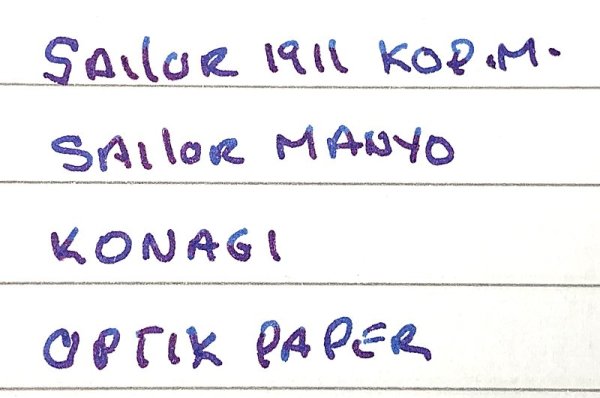 SAILOR 1911 KOP.M.
SAILOR MANYO
KONAGI
OPTIK PAPER